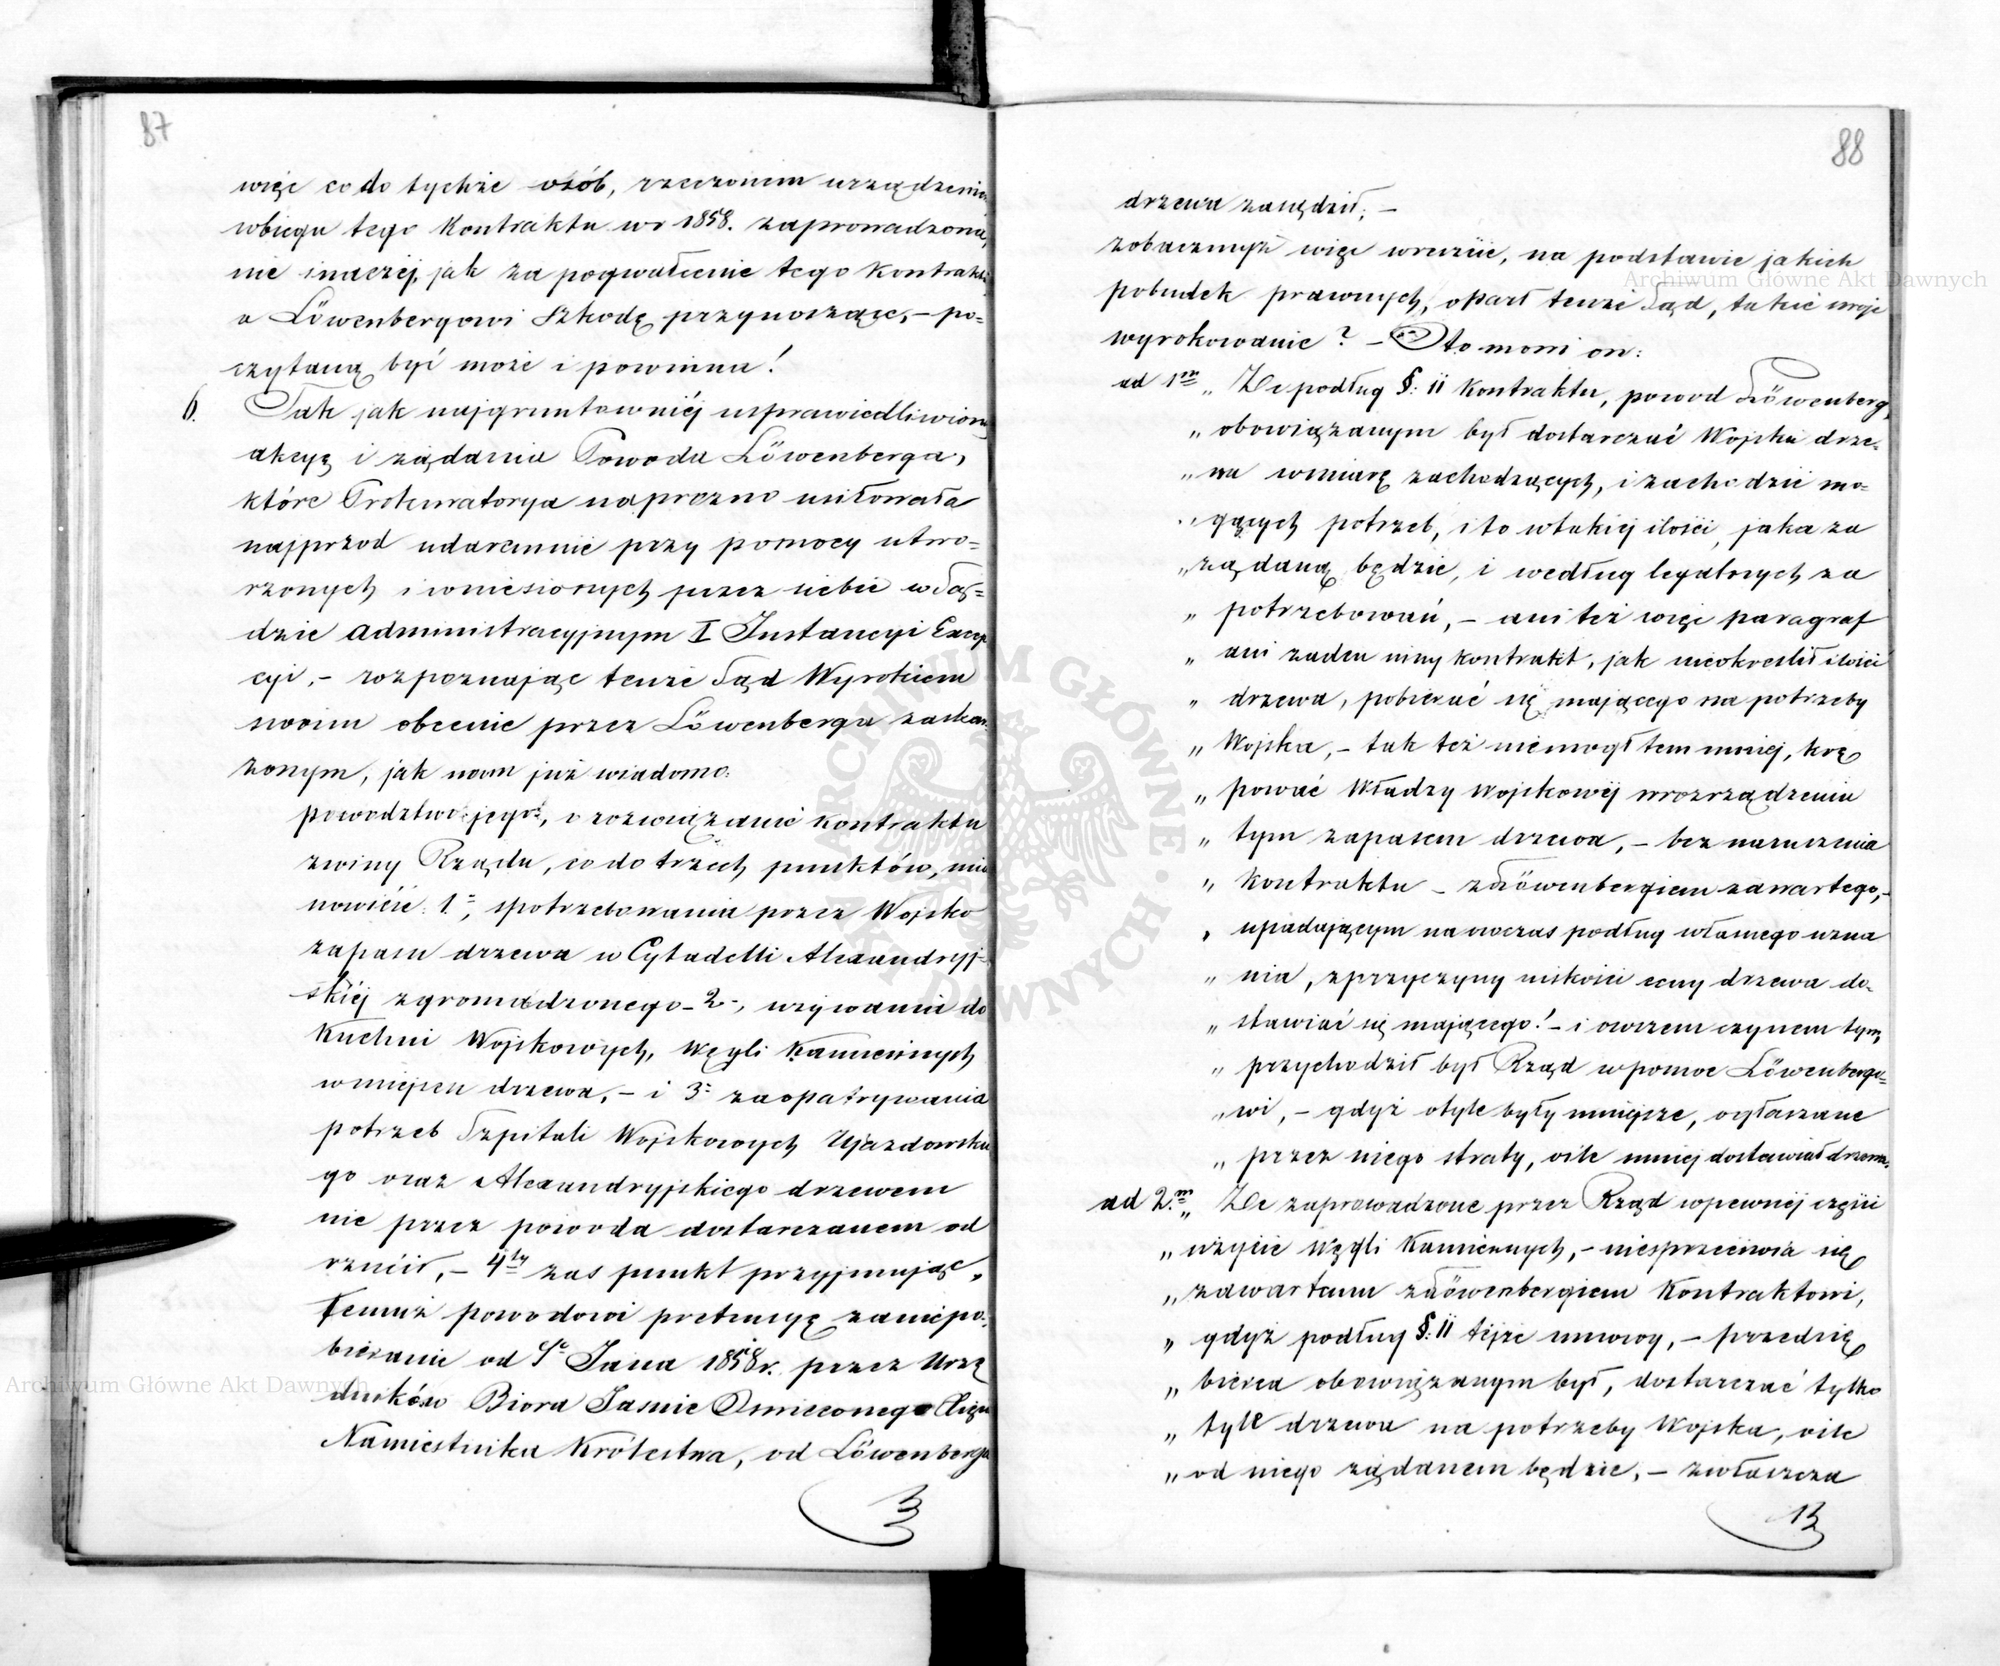 87
więc co do tychże osób, rzeczonem urządzenie
wbiegu tego Kontraktu wr 1858. zaprowadzone,
nie inaczéj, jak za pogwałcenie tego Kontraktu
a Löwenbergowi Szkodę przynoszące, – po=
czytaną być może i powinna!
6. Tak jak najgruntowniéj usprawiedliwioną
akcyę i żądania Powoda Löwenberga,
które Prokuratorya naprozno usiłowała
najprzod udaremnić przy pomocy utwo=
rzonych i wniesionych przez siebie w Są=
dzie administracyjnym I Instancyi Excep
cyi, – rozpoznając tenże Sąd Wyrokiem
swoim obecnie przez Löwenberga zaskar=
żonym, jak nam już wiadomo:
powodztwo jegoż, o rozwiązanie kontraktu
zwiny Rządu, co do trzech punktów, mia
nowicie: 1º, spotrzebowania przez Wojsko
zapasu drzewa w Cytadelli Alexandryj=
skiéj zgromadzonego – 2º, używania do
Kuchni Wojskowych, Węgli Kamiennych
wmiejscu drzewa, – i 3º zaopatrywania
potrzeb Szpitali Wojskowych Ujazdowskie
go oraz Alexandryjskiego drzewem
nie przez powoda dostarczanem od
rzucił, – 4ty zas punkt przyjmując,
temuż powodowi pretensyę zaniepo=
bieranie od Sgo Jana 1858 r. przez Urzę
dników Biora Jasnie Oswieconego Xięcia
Namiestnika Królestwa, od Löwenberga
88
drzewa zasądził; –
zobaczmyż więc wreszcie, na podstawie jakich
pobudek prawnych, oparł tenże Sąd, takie swoje
wyrokowanie? – Oto mowi on:
ad 1m „ Ze podług §: 11 Kontraktu, powod Löwenberg,
„ obowiązanym był dostarczać Wojsku drze=
„ wa wmiarę zachodzących, i zachodzić mo=
„ gących potrzeb, i to wtakiéj ilości, jaka za
„ żądaną będzie, i według legalnych za
„ potrzebowań, – ani też więc paragraf
„ ani żaden inny kontrakt, jak nieokreslił ilości
„ drzewa, pobierać się mającego na potrzeby
„ Wojska, – tak też niemogł tem mniej, krę
„ pować Władzy Wojskowéj wrozrządzeniu
„ tym zapasem drzewa, – bez naruszenia
„ Kontraktu – z Löwenbergiem zawartego, –
„ upadającym naowczas podług własnego uzna
„ nia, zprzyczyny niskości ceny drzewa do=
„ stawiać się mającego! – i owszem czynem tym,
„ przychodził był Rząd wpomoc Löwenbergo=
„ wi, – gdyż otyle były mniejsze, ogłaszane
„ przez niego straty, oile mniej dostawiał drzewa.
ad 2.m „ Ze zaprowadzone przez Rząd wpewnéj części
„ użycie Węgli Kamiennych, – niesprzeciwia się
„ zawartemu z Löwenbergiem Kontraktowi,
„ gdyż podług §: 11 téjże umowy, – przedsię
„ bierca obowiązanym był, dostarczać tylko
„ tyle drzewa na potrzeby Wojska, oile
„ od niego żądanem będzie, – zwłaszcza